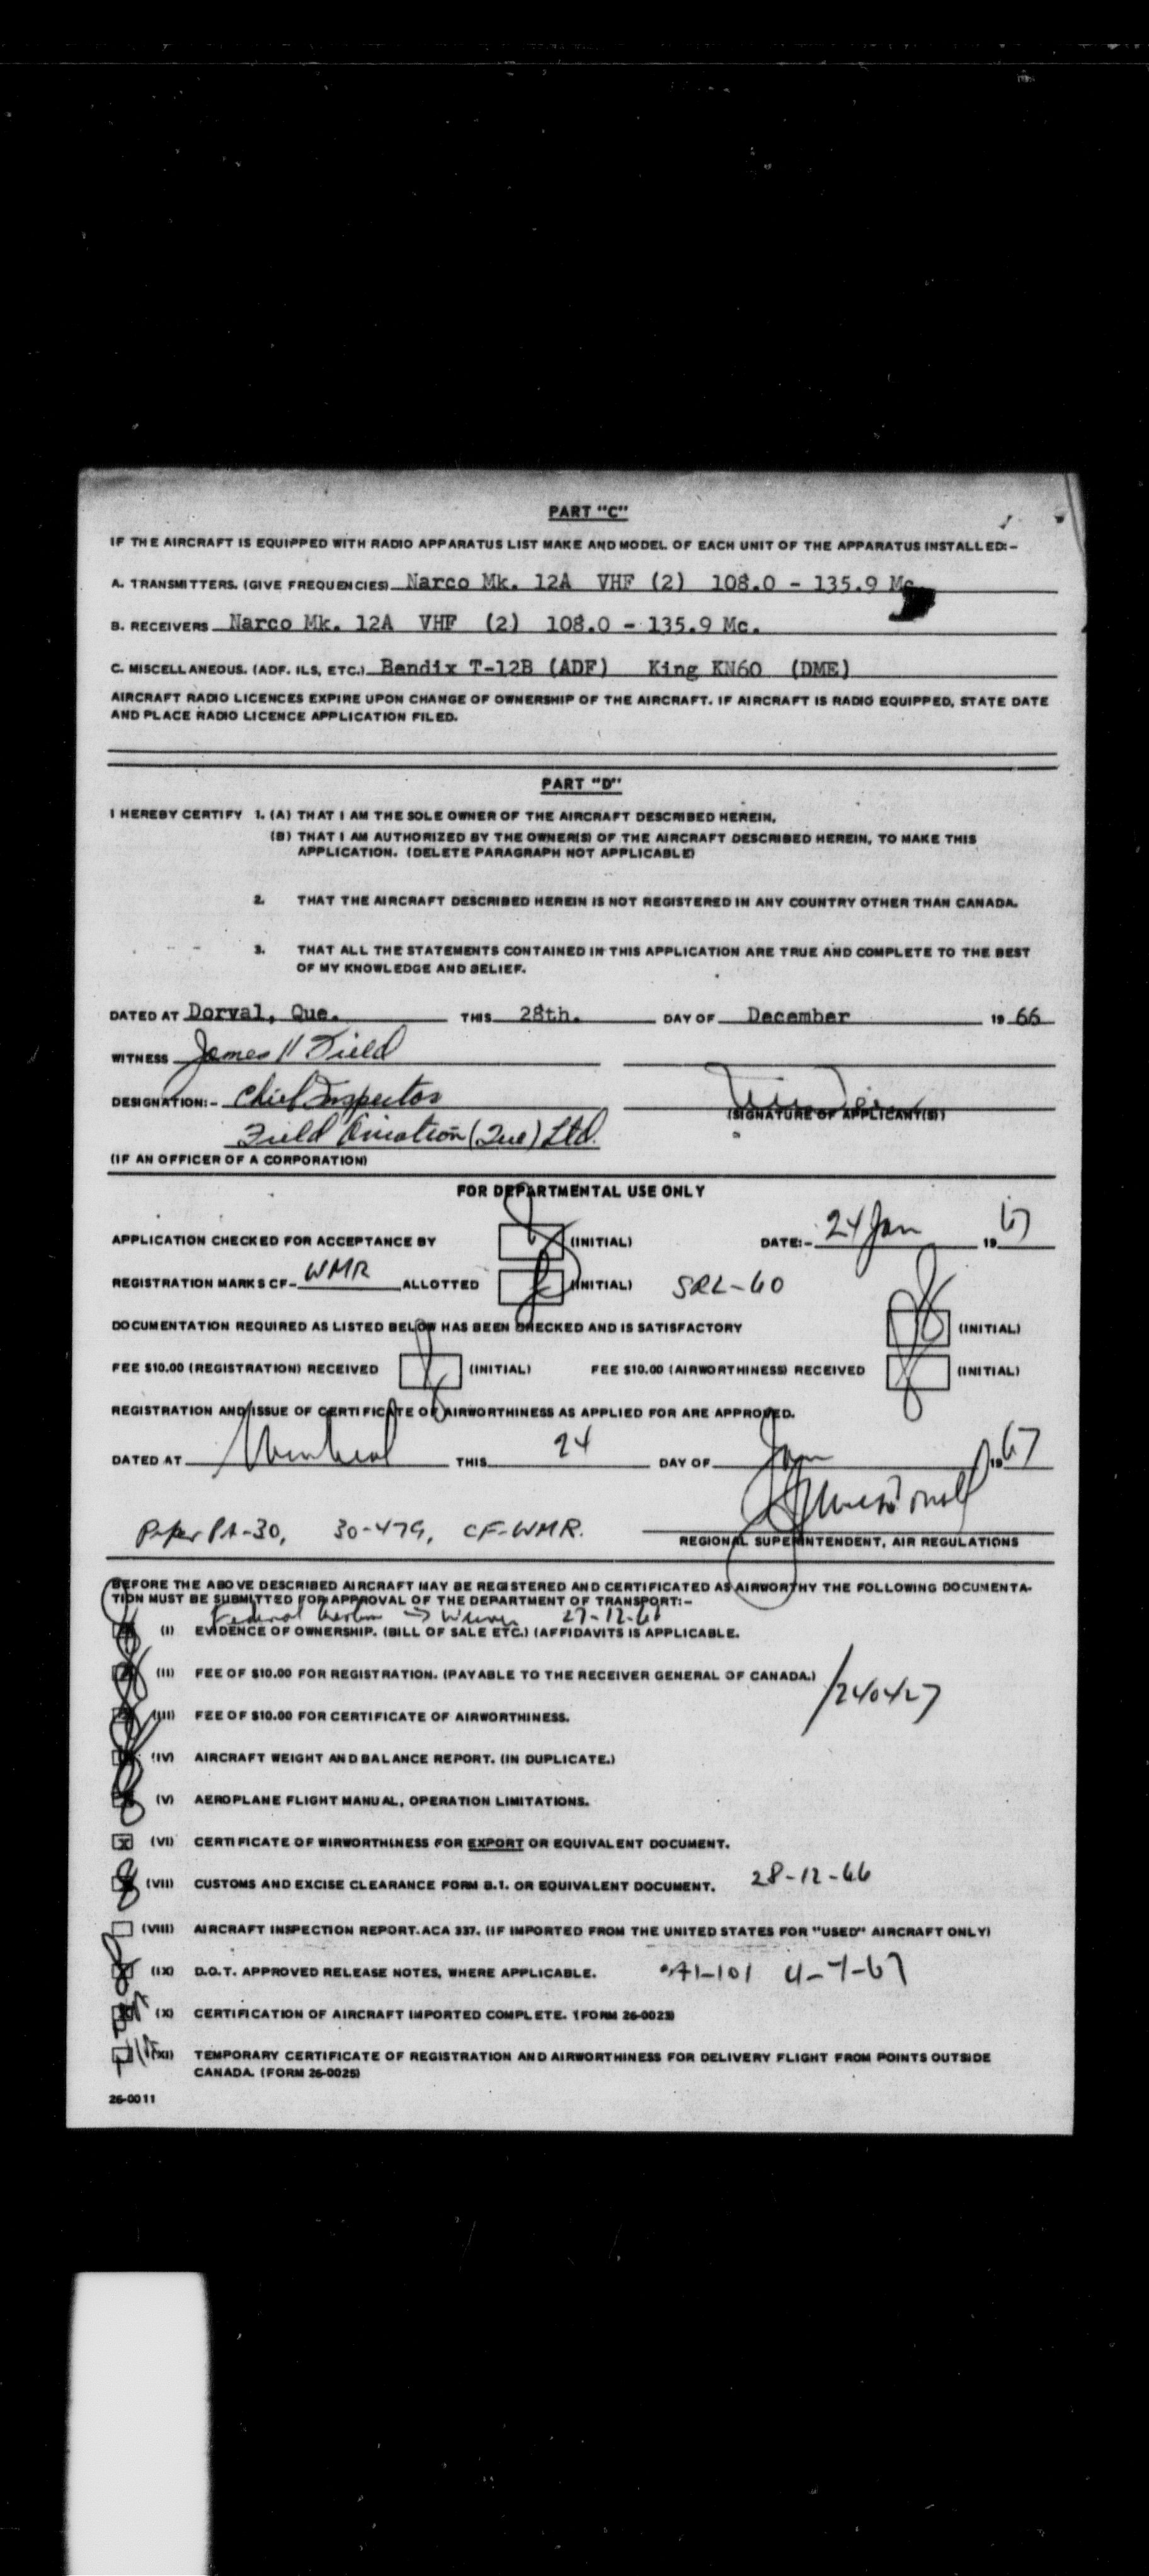 PART "C"
IF THE AIRCRAFT IS EQUIPPED WITH RADIO APPARATUS LIST MAKE AND MODEL OF EACH UNIT OF THE APPARATUS INSTALLED:-
A. TRANSMITTERS. (GIVE FREQUENCIES) Narco Mk. 12A VHF (2) 108.0 - 135.9 Mc.
B. RECEIVERS Narco Mk. 12A VHF (2) 108.0 - 135.9 Mc.
C. MISCELLANEOUS. (ADF. ILS, ETC.) Bendix T-12B (ADF) King KN60 (DME)
AIRCRAFT RADIO LICENCES EXPIRE UPON CHANGE OF OWNERSHIP OF THE AIRCRAFT. IF AIRCRAFT IS RADIO EQUIPPED, STATE DATE
AND PLACE RADIO LICENCE APPLICATION FILED.
PART "D"
I HEREBY CERTIFY 1. (A) THAT I AM THE SOLE OWNER OF THE AIRCRAFT DESCRIBED HEREIN,
(B) THAT I AM AUTHORIZED BY THE OWNER(S) OF THE AIRCRAFT DESCRIBED HEREIN, TO MAKE THIS
APPLICATION. (DELETE PARAGRAPH NOT APPLICABLE)
2. THAT THE AIRCRAFT DESCRIBED HEREIN IS NOT REGISTERED IN ANY COUNTRY OTHER THAN CANADA.
3. THAT ALL THE STATEMENTS CONTAINED IN THIS APPLICATION ARE TRUE AND COMPLETE TO THE BEST
OF MY KNOWLEDGE AND BELIEF.
DATED AT Dorval, Que. THIS 28th. DAY OF December 19 66
WITNESS James H Field
DESIGNATION:- Chief Inspector
(SIGNATURE OF APPLICANT(S))
Field Aviation (Que) Ltd.
(IF AN OFFICER OF A CORPORATION)
FOR DEPARTMENTAL USE ONLY
APPLICATION CHECKED FOR ACCEPTANCE BY (INITIAL) DATE:- 24 Jan 19 67
REGISTRATION MARKS CF- WMR ALLOTTED (INITIAL) SRL-60
DOCUMENTATION REQUIRED AS LISTED BELOW HAS BEEN CHECKED AND IS SATISFACTORY (INITIAL)
FEE $10.00 (REGISTRATION) RECEIVED (INITIAL) FEE $10.00 (AIRWORTHINESS) RECEIVED (INITIAL)
REGISTRATION AND ISSUE OF CERTIFICATE OF AIRWORTHINESS AS APPLIED FOR ARE APPROVED.
DATED AT Montreal THIS 24 DAY OF Jan 19 67
Piper PA-30, 30-479, CF-WMR.
REGIONAL SUPERINTENDENT, AIR REGULATIONS
BEFORE THE ABOVE DESCRIBED AIRCRAFT MAY BE REGISTERED AND CERTIFICATED AS AIRWORTHY THE FOLLOWING DOCUMENTA-
TION MUST BE SUBMITTED FOR APPROVAL OF THE DEPARTMENT OF TRANSPORT:-
Federal 27-12-66
(I) EVIDENCE OF OWNERSHIP. (BILL OF SALE ETC.) (AFFIDAVITS IS APPLICABLE.
(II) FEE OF $10.00 FOR REGISTRATION. (PAYABLE TO THE RECEIVER GENERAL OF CANADA.)
240427
(III) FEE OF $10.00 FOR CERTIFICATE OF AIRWORTHINESS.
(IV) AIRCRAFT WEIGHT AND BALANCE REPORT. (IN DUPLICATE.)
(V) AEROPLANE FLIGHT MANUAL, OPERATION LIMITATIONS.
X (VI) CERTIFICATE OF WIRWORTHINESS FOR EXPORT OR EQUIVALENT DOCUMENT.
(VII) CUSTOMS AND EXCISE CLEARANCE FORM B.1. OR EQUIVALENT DOCUMENT. 28-12-66
(VIII) AIRCRAFT INSPECTION REPORT.ACA 337. (IF IMPORTED FROM THE UNITED STATES FOR "USED" AIRCRAFT ONLY)
(IX) D.O.T. APPROVED RELEASE NOTES, WHERE APPLICABLE.
(X) CERTIFICATION OF AIRCRAFT IMPORTED COMPLETE. (FORM 26-0023)
(XI) TEMPORARY CERTIFICATE OF REGISTRATION AND AIRWORTHINESS FOR DELIVERY FLIGHT FROM POINTS OUTSIDE
CANADA. (FORM 26-0025)
26-0011